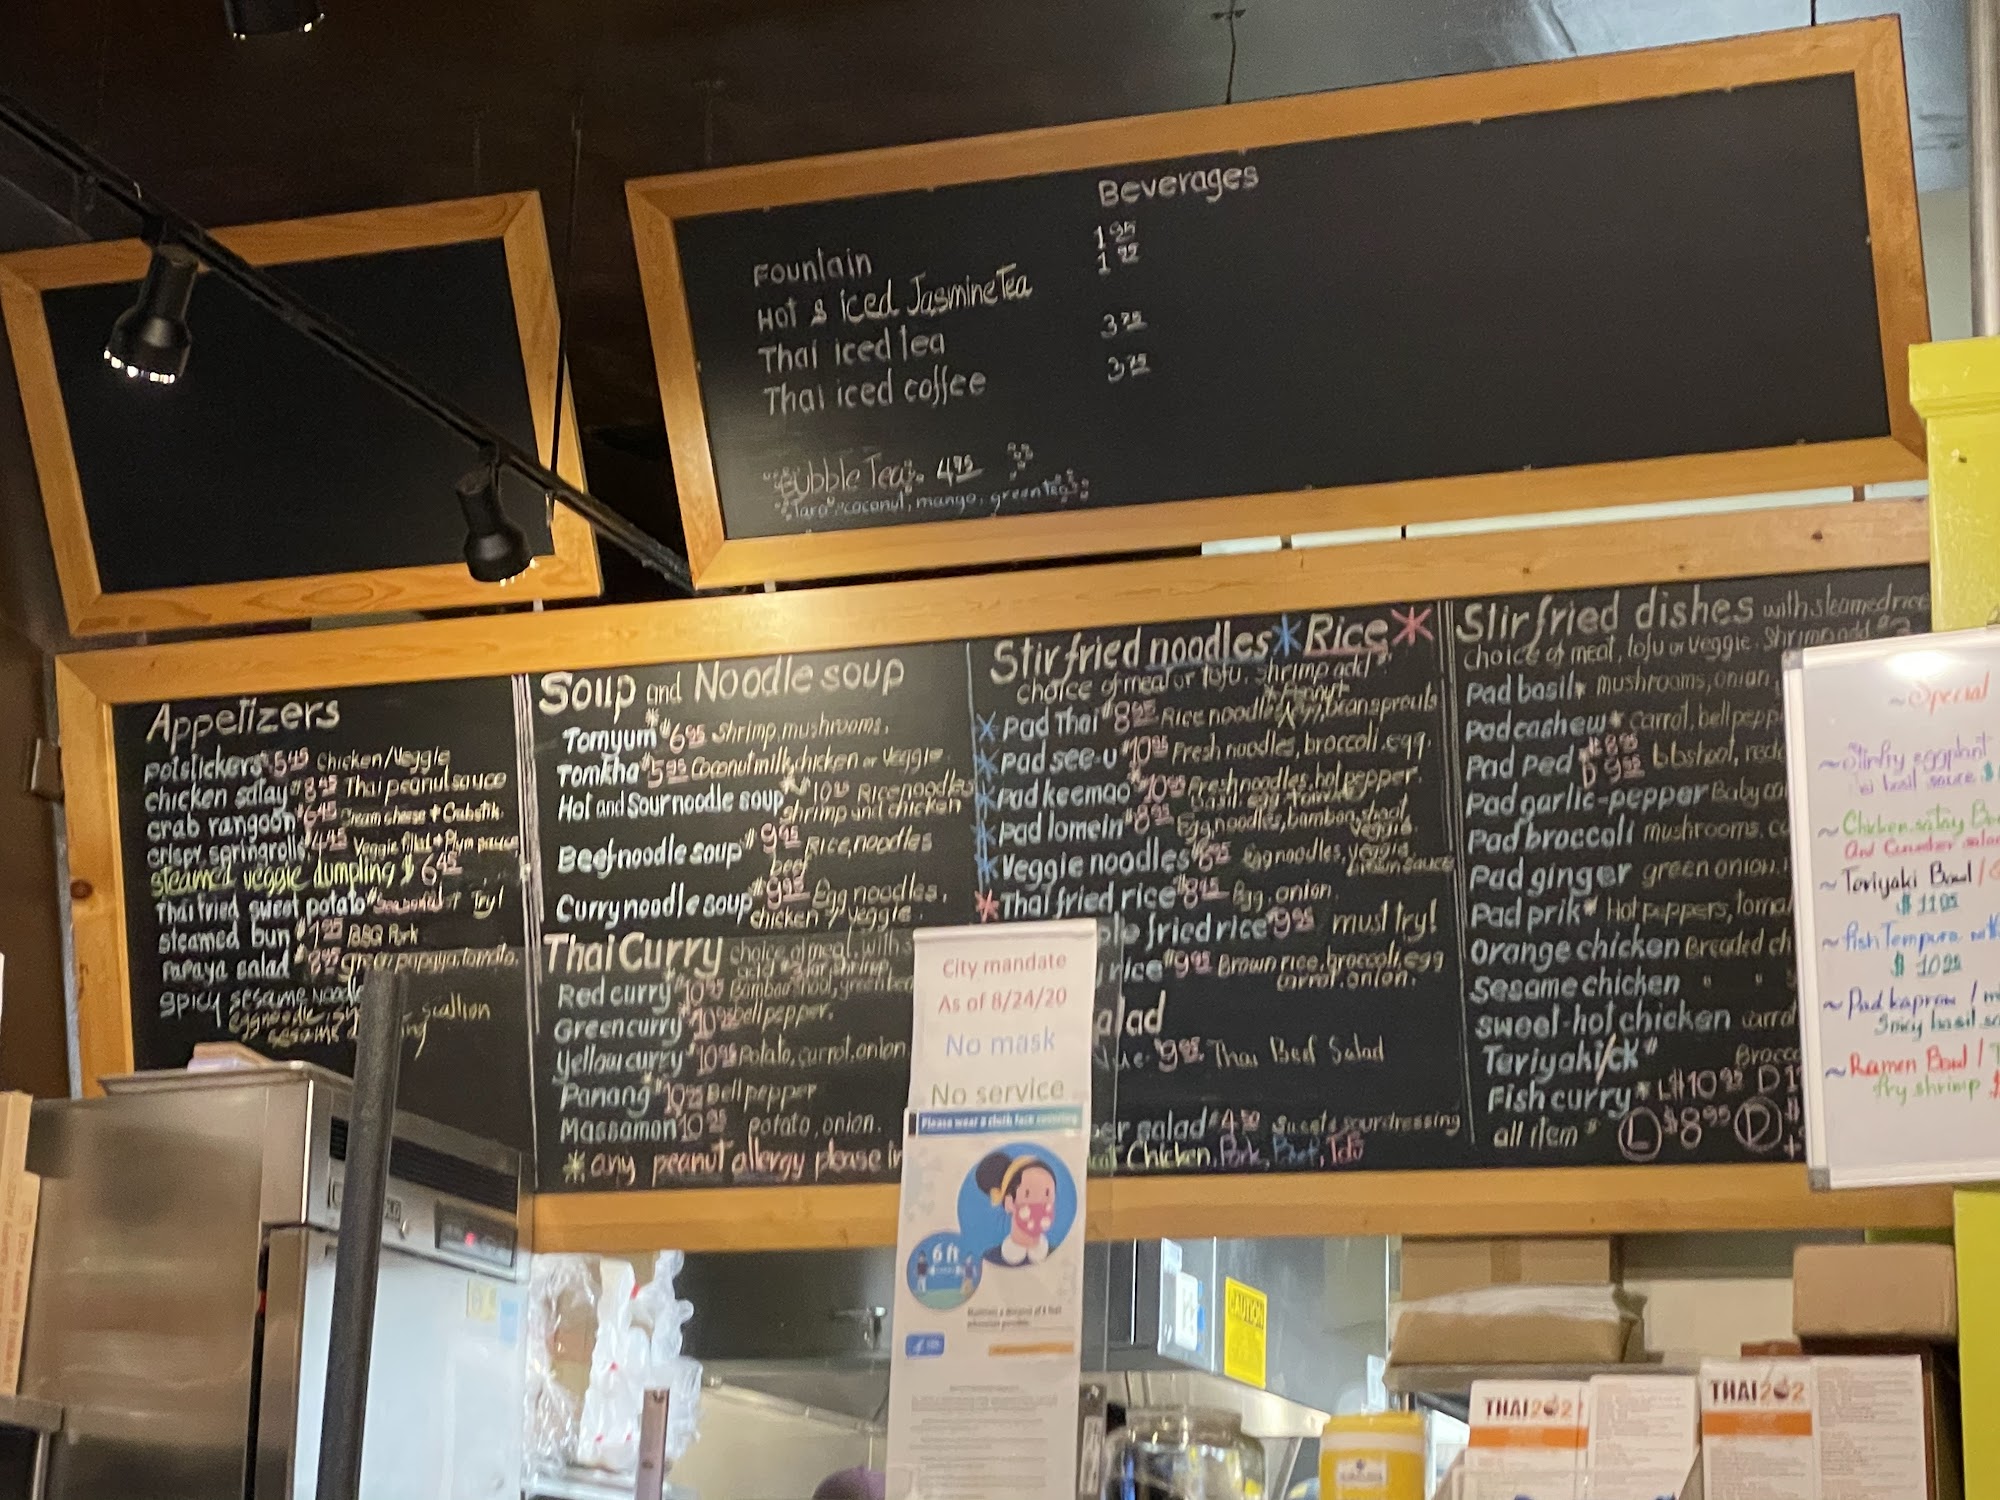 Beverages
Fountain 1 95
Hot & iced Jasmine Tea 1 95
Thai iced tea 3 75
Thai iced coffee 3 75
Bubble Tea 4 95
Taro, coconut, mango, green tea
Appetizers
potstickers $5 45 Chicken/Veggie
chicken satay $8 45 Thai peanut sauce
crab rangoon $6 45 cream cheese + Crabstik
crispy springrolls $4 45 Veggie filled + Plum sauce
steamed veggie dumpling $6 45
Thai fried sweet potato Seasonal Try!
steamed bun $1 95 BBQ Pork
Papaya salad $8 95 green papaya, tomato.
spicy sesame noodle
eggnoodle scallion
sesame
Soup and Noodle soup
Tomyum* $6 95 Shrimp, mushrooms.
Tomkha $5 95 Coconut milk, chicken or Veggie.
Hot and Sour noodle soup* $10 95 Rice noodles
shrimp and chicken
Beef noodle soup $9 95 Rice, noodles
beef
Curry noodle soup $9 95 Egg noodles,
chicken / veggie.
Thai Curry choice of meat, with
add $2 for shrimp
Red curry $10 95 Bamboo shoot, green be
Green curry $10 95 Bell pepper.
Yellow curry $10 95 Potato, carrot, onion
Panang* $10 95 Bell pepper
Massamon 10 95 potato, onion.
* any peanut allergy please in
Stir fried noodles * Rice *
choice of meat or tofu. shrimp add
* Pad Thai $8 95 Rice noodle, egg, bean sprouts
Peanut
* Pad see-u $10 95 Fresh noodles, broccoli, egg.
* Pad keemao $10 95 Fresh noodles, hot pepper.
Basil, egg, tomato
* Pad lomein $8 95 Egg noodles, bamboo shoot
veggie.
* Veggie noodles $8 95 Egg noodles, veggie,
brown sauce
* Thai fried rice $8 95 Egg, onion.
ple fried rice $9 95 must try!
rice $9 95 Brown rice, broccoli, egg
carrot, onion.
alad
Nue $9 95 Thai Beef Salad
er salad $4 50 Sweet & sour dressing
Chicken, Pork, Beef, Tofu
Stir fried dishes with steamed rice
choice of meat, tofu or veggie. Shrimp add $2
Pad basil* mushrooms, onion,
Pad cashew* carrot, bell pepp
Pad Ped $8 95
D 9 95
Pad garlic-pepper Baby co
Pad broccoli mushrooms, ca
Pad ginger green onion,
Pad prik* Hot peppers, toma
Orange chicken Breaded ch
Sesame chicken " "
Sweet-hot chicken carrot
Teriyaki/ck* Brocc
Fish curry* L $10 95 D 1
all item* L $8 95 D $
~Special
~Stirfry eggplant
w/ basil sauce $
~Chicken satay Bo
And Cucumber salad
~Teriyaki Bowl /
$ 11 95
~Fish Tempura
$ 10 95
~Pad kaprow /
Spicy basil sa
~Ramen Bowl /
fry shrimp
City mandate
As of 8/24/20
No mask
No service
Please wear a cloth face covering
6 ft
Maintain a distance of 6 feet
whenever possible.
CAUTION
THAI202
THAI202